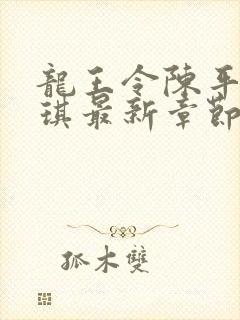 龍王令陳平
琪最新章節
孤木雙